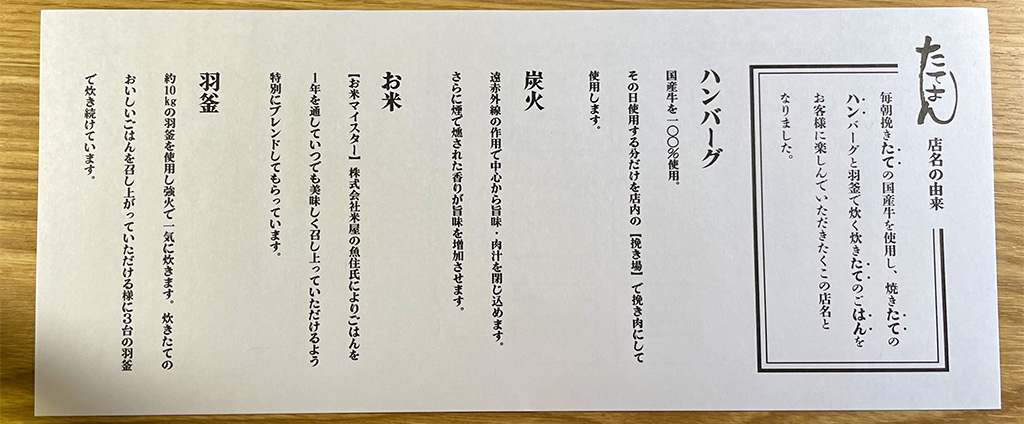 たてはん
店名の由来
毎朝挽きたての国産牛を使用し、焼きたての
ハンバーグと羽釜で炊く炊きたてのごはんを
お客様に楽しんでいただきたくこの店名と
なりました。
ハンバーグ
国産牛を一〇〇%使用。
その日使用する分だけを店内の【挽き場】で挽き肉にして
使用します。
炭火
遠赤外線の作用で中心から旨味・肉汁を閉じ込めます。
さらに煙で燻された香りが旨味を増加させます。
お米
【お米マイスター】株式会社米屋の魚住氏によりごはんを
1年を通していつでも美味しく召し上っていただけるよう
特別にブレンドしてもらっています。
羽釜
約10kgの羽釜を使用し強火で一気に炊きます。炊きたての
おいしいごはんを召し上がっていただける様に3台の羽釜
で炊き続けています。